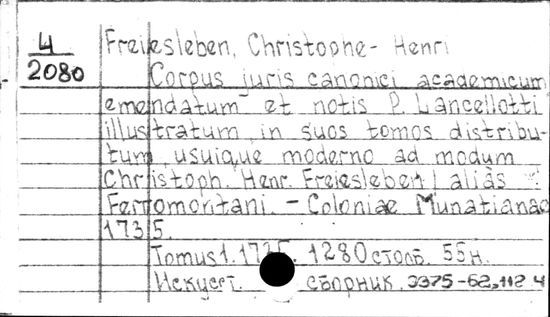 4
2080
Freiesleben, Christophe-Henri
Corpus juris canonici academicum
emendatum et notis P. Lancellotti
illustratum, in suos tomos distribu-
tum, usuique moderno ad modum
Christoph. Henr. Freiesleben alias
Ferromontani. - Coloniae Munatianae
1735.
Tomus 1. 1735. 1280 столб. 55 н.
Искусст. сборник. 3375-62,112 4